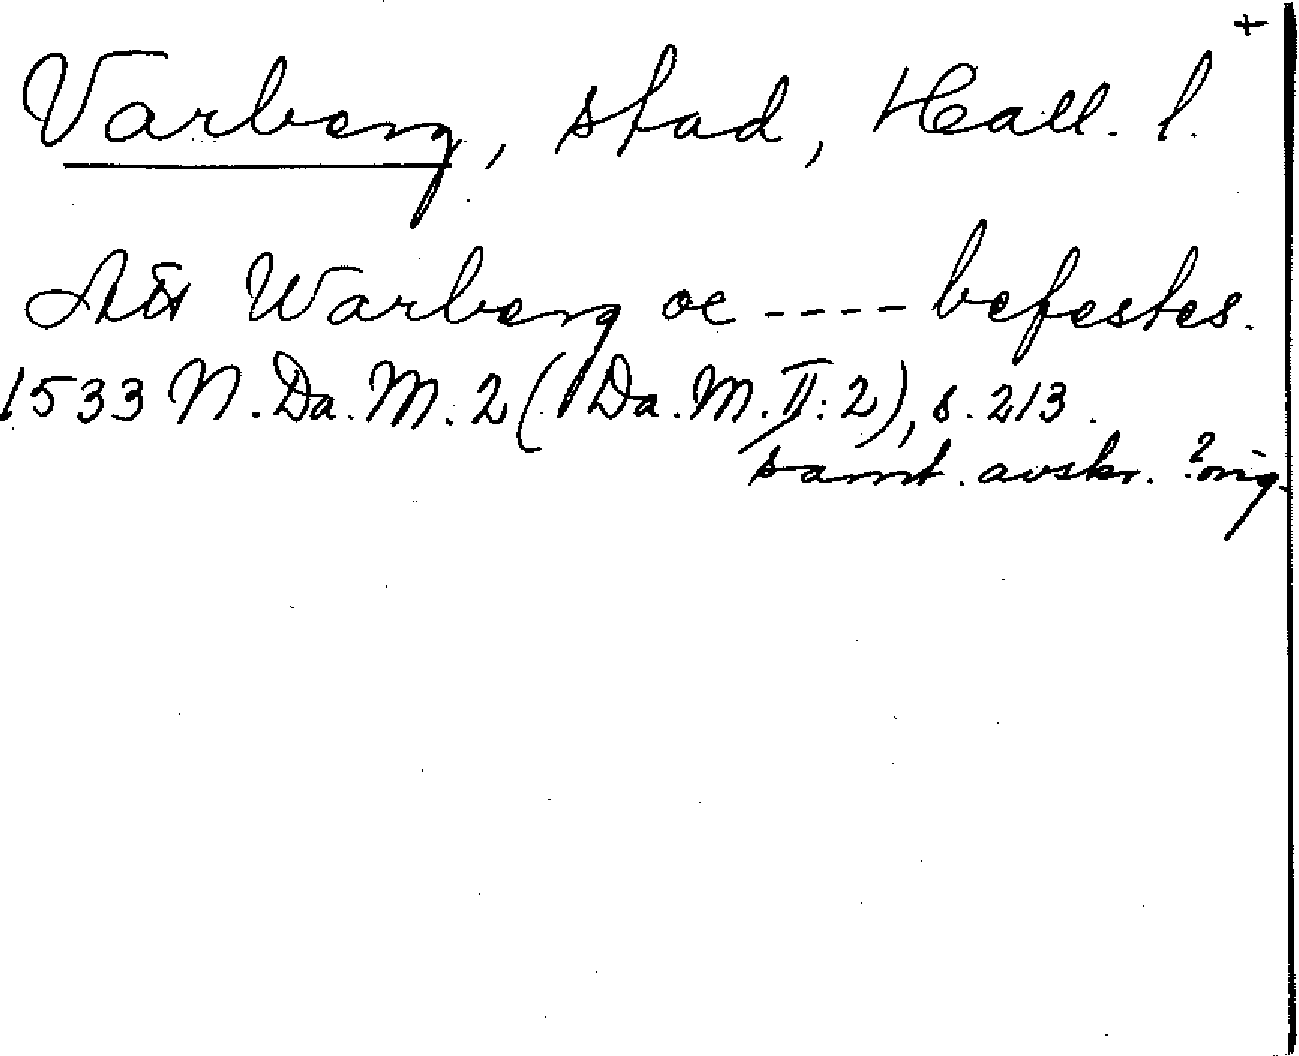 +
Varberg, stad, Hall. l.
Att Warberg oc ---- befestes.
1533 N. Da. M. 2 (Da. M. II: 2), s. 213.
samt. avskr. ? orig.